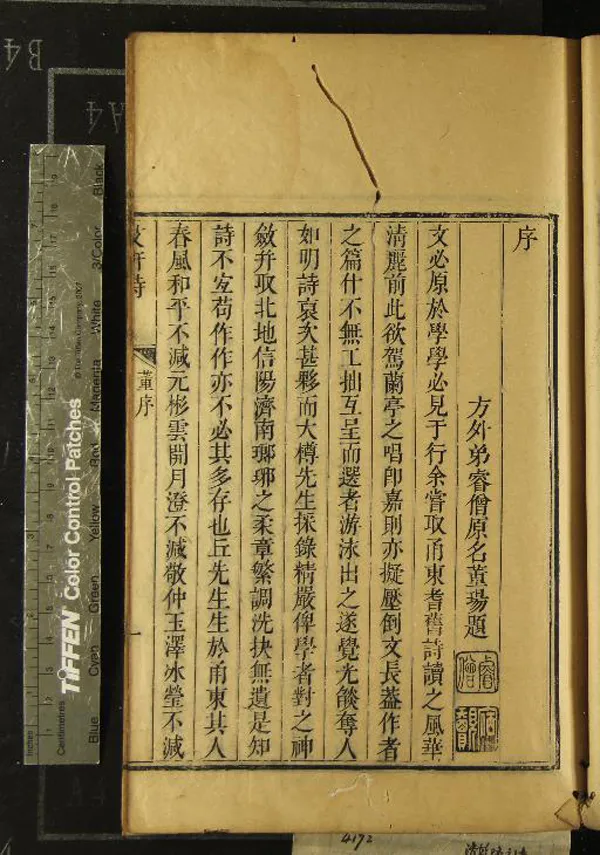 序
方外弟睿僧原名董瑒題
文必原於學學必見于行余嘗取甬東耆舊詩讀之風華
淸麗前此欲駕蘭亭之唱卽嘉則亦擬壓倒文長葢作者
之篇什不無工拙互呈而選者游泳出之遂覺光燄奪人
如明詩裒次甚夥而大樽先生採錄精嚴俾學者對之神
斂幷取北地信陽濟南瑯琊之柔章繁調洗抉無遺是知
詩不宐苟作作亦不必其多存也丘先生生於甬東其人
春風和平不減元彬雲開月澄不減敬仲玉澤冰瑩不減
董序
一
B4
A4
TIFFEN Color Control Patches
© The Tiffen Company, 2007
Inches
Centimetres
Blue
Cyan
Green
Yellow
Red
Magenta
White
3/Color
Black
4172